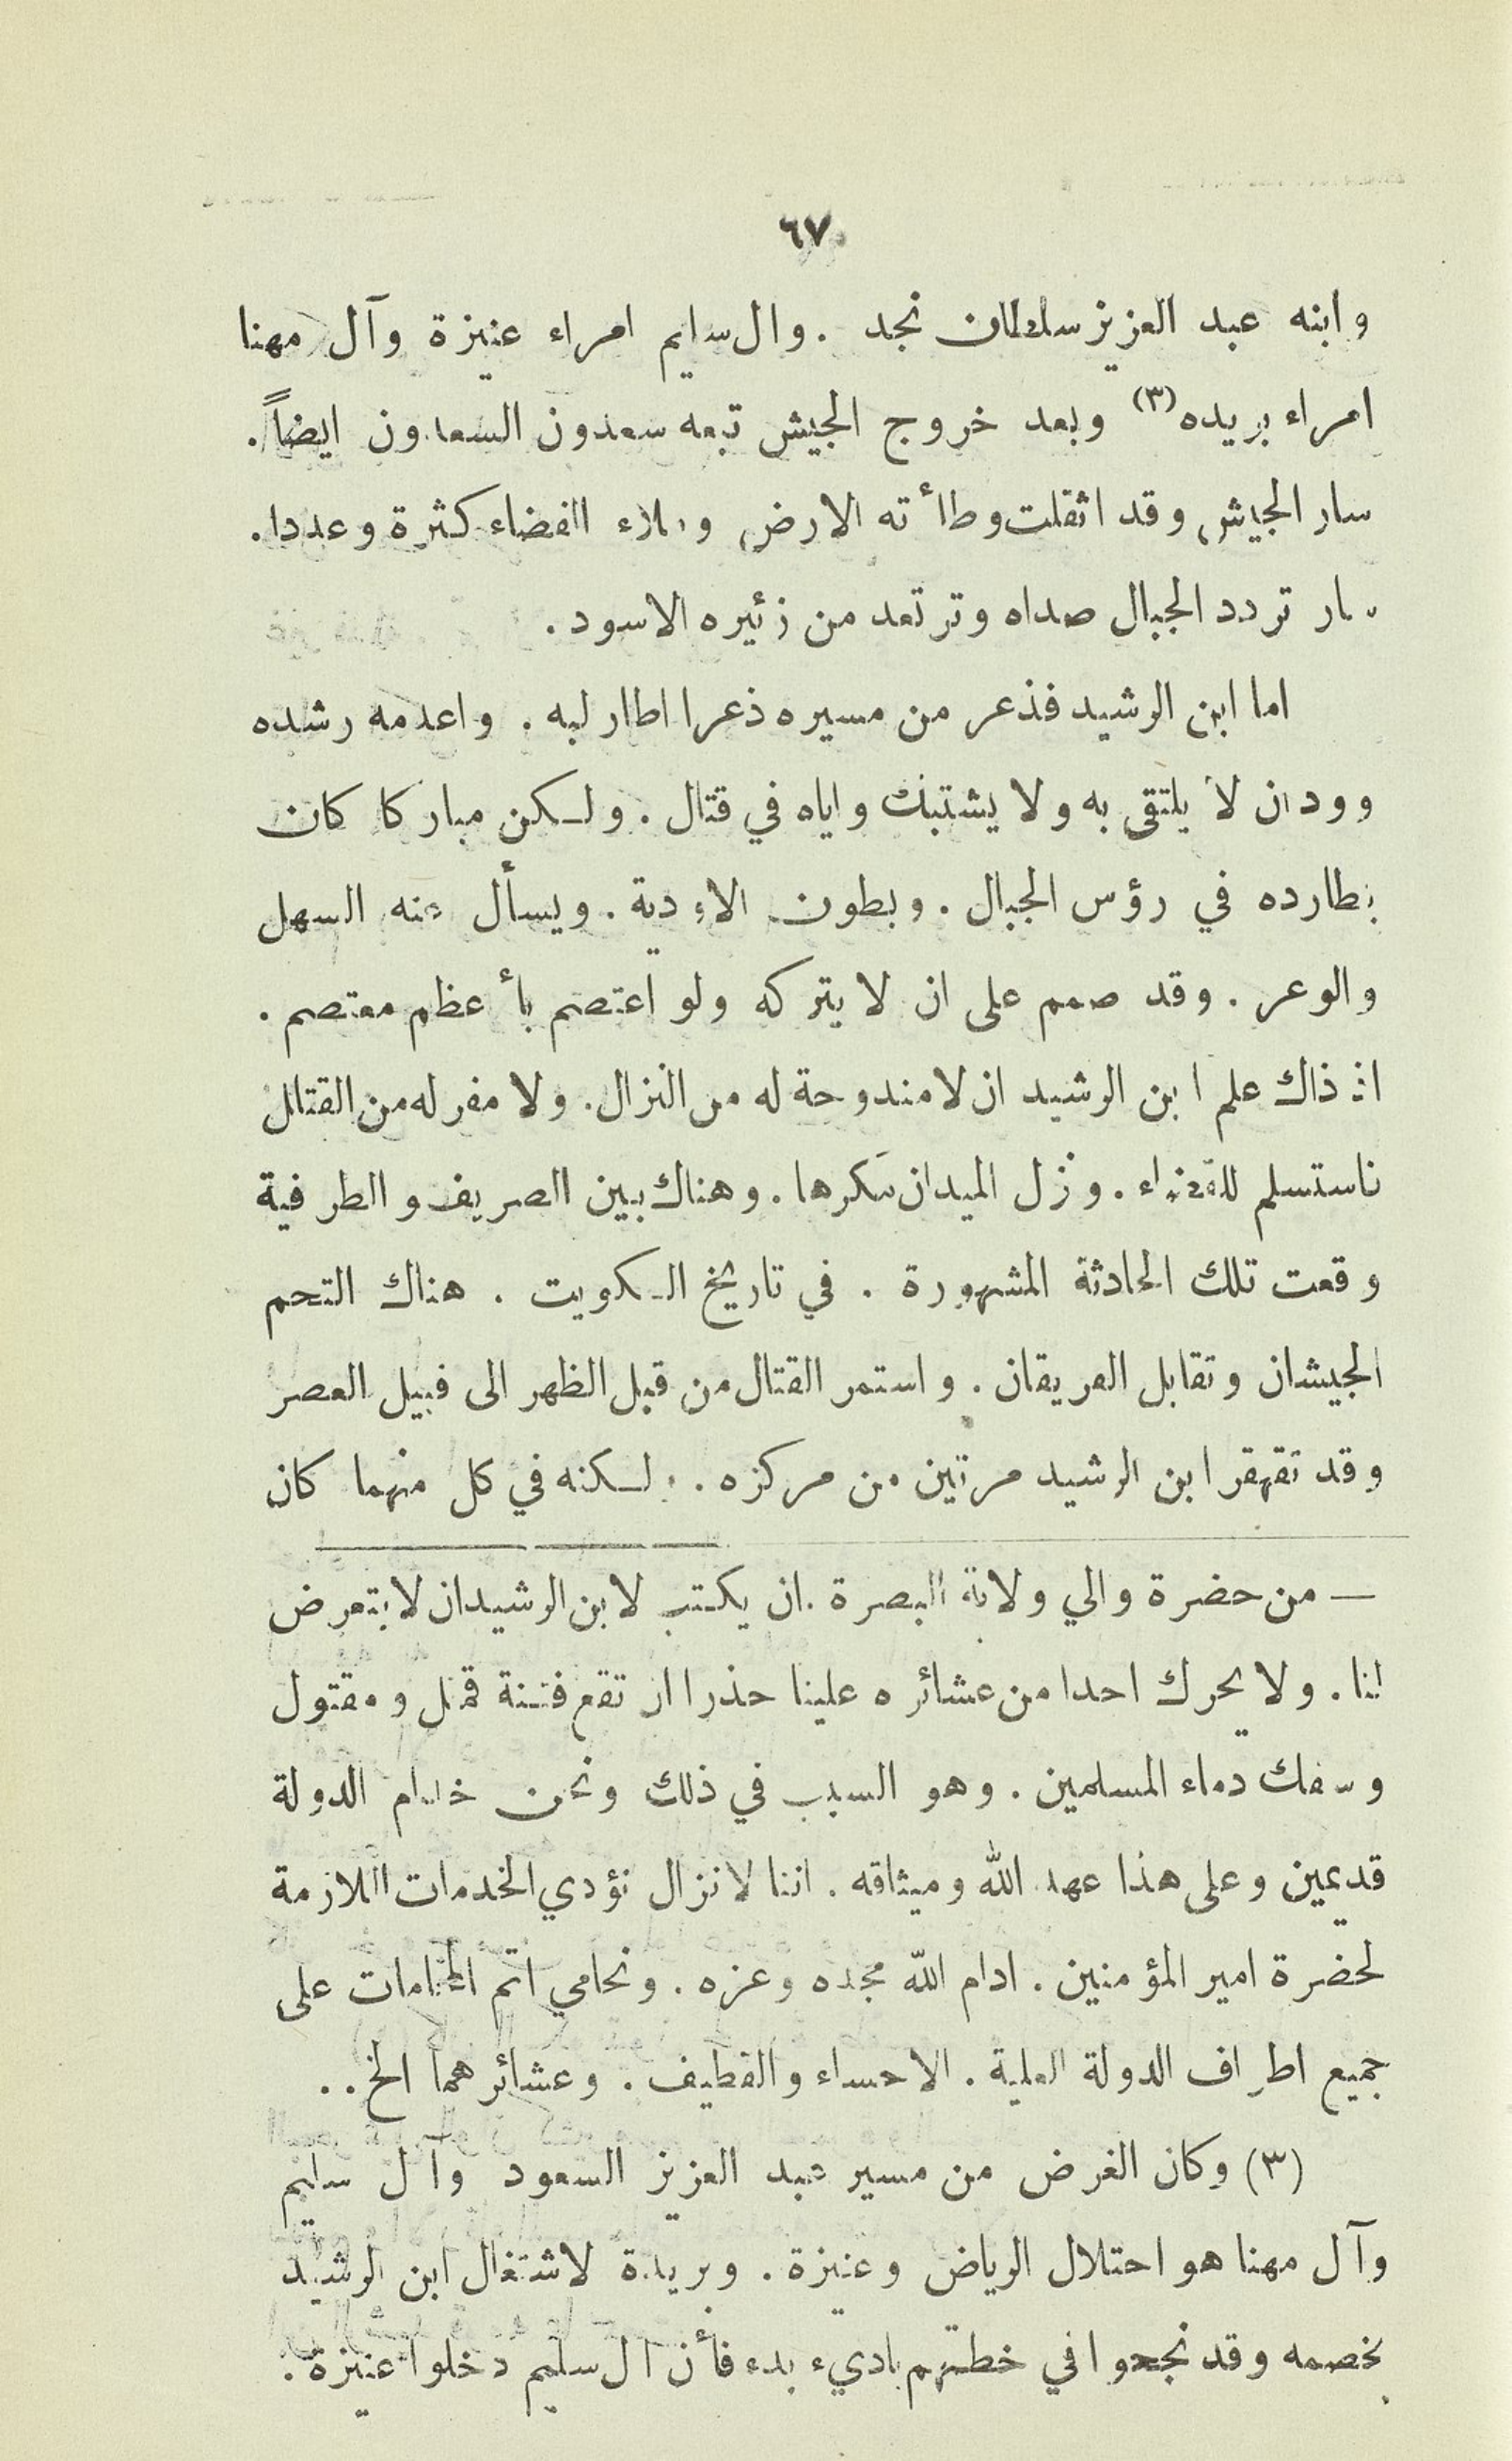 ٦٧
وابنه عبد العزيز سلطان نجد . وال سليم امراء عنيزة وآل مهنا
امراء بريده (٣) وبعد خروج الجيش تبعه سعدون السعدون ايضاً.
سار الجيش وقد اثقلت وطأته الارض وملاء الفضاء كثرة وعددا.
سار تردد الجبال صداه وترتعد من زئيره الاسود .
اما ابن الرشيد فذعر من مسيره ذعرا اطار لبه . واعدمه رشده
وود ان لا يلتقى به ولا يشتبك واياه في قتال . ولكن مباركا كان
يطارده في رؤس الجبال . وبطون الاودية . ويسأل عنه السهل
والوعر . وقد صمم على ان لا يتركه ولو اعتصم بأعظم معتصم .
اذ ذاك علم ابن الرشيد ان لا مندوحة له من النزال . ولا مفر له من القتال
فاستسلم للقضاء . ونزل الميدان مكرها . وهناك بين الصريف والطرفية
وقعت تلك الحادثة المشهورة . في تاريخ الكويت . هناك التحم
الجيشان وتقابل الفريقان . واستمر القتال من قبل الظهر الى قبيل العصر
وقد تقهقر ابن الرشيد مرتين من مركزه . ولكنه في كل منهما كان
— من حضرة والي ولاية البصرة . ان يكتب لابن الرشيد ان لا يتعرض
لنا . ولا يحرك احدا من عشائره علينا حذرا ان تقع فتنة قتل ومقتول
وسفك دماء المسلمين . وهو السبب في ذلك ونحن خدام الدولة
قديمين وعلى هذا عهد الله وميثاقه . اننا لا نزال نؤدي الخدمات اللازمة
لحضرة امير المؤمنين . ادام الله مجده وعزه . ونحامي اتم المحامات على
جميع اطراف الدولة العلية . الاحساء والقطيف . وعشائرهما الخ . .
(٣) وكان الغرض من مسير عبد العزيز السعود وآل سليم
وآل مهنا هو احتلال الرياض وعنيزة . وبريدة لاشتغال ابن الرشيد
بخصمه وقد نجحوا في خطتهم باديء بدء فأن ال سليم دخلوا عنيزة .